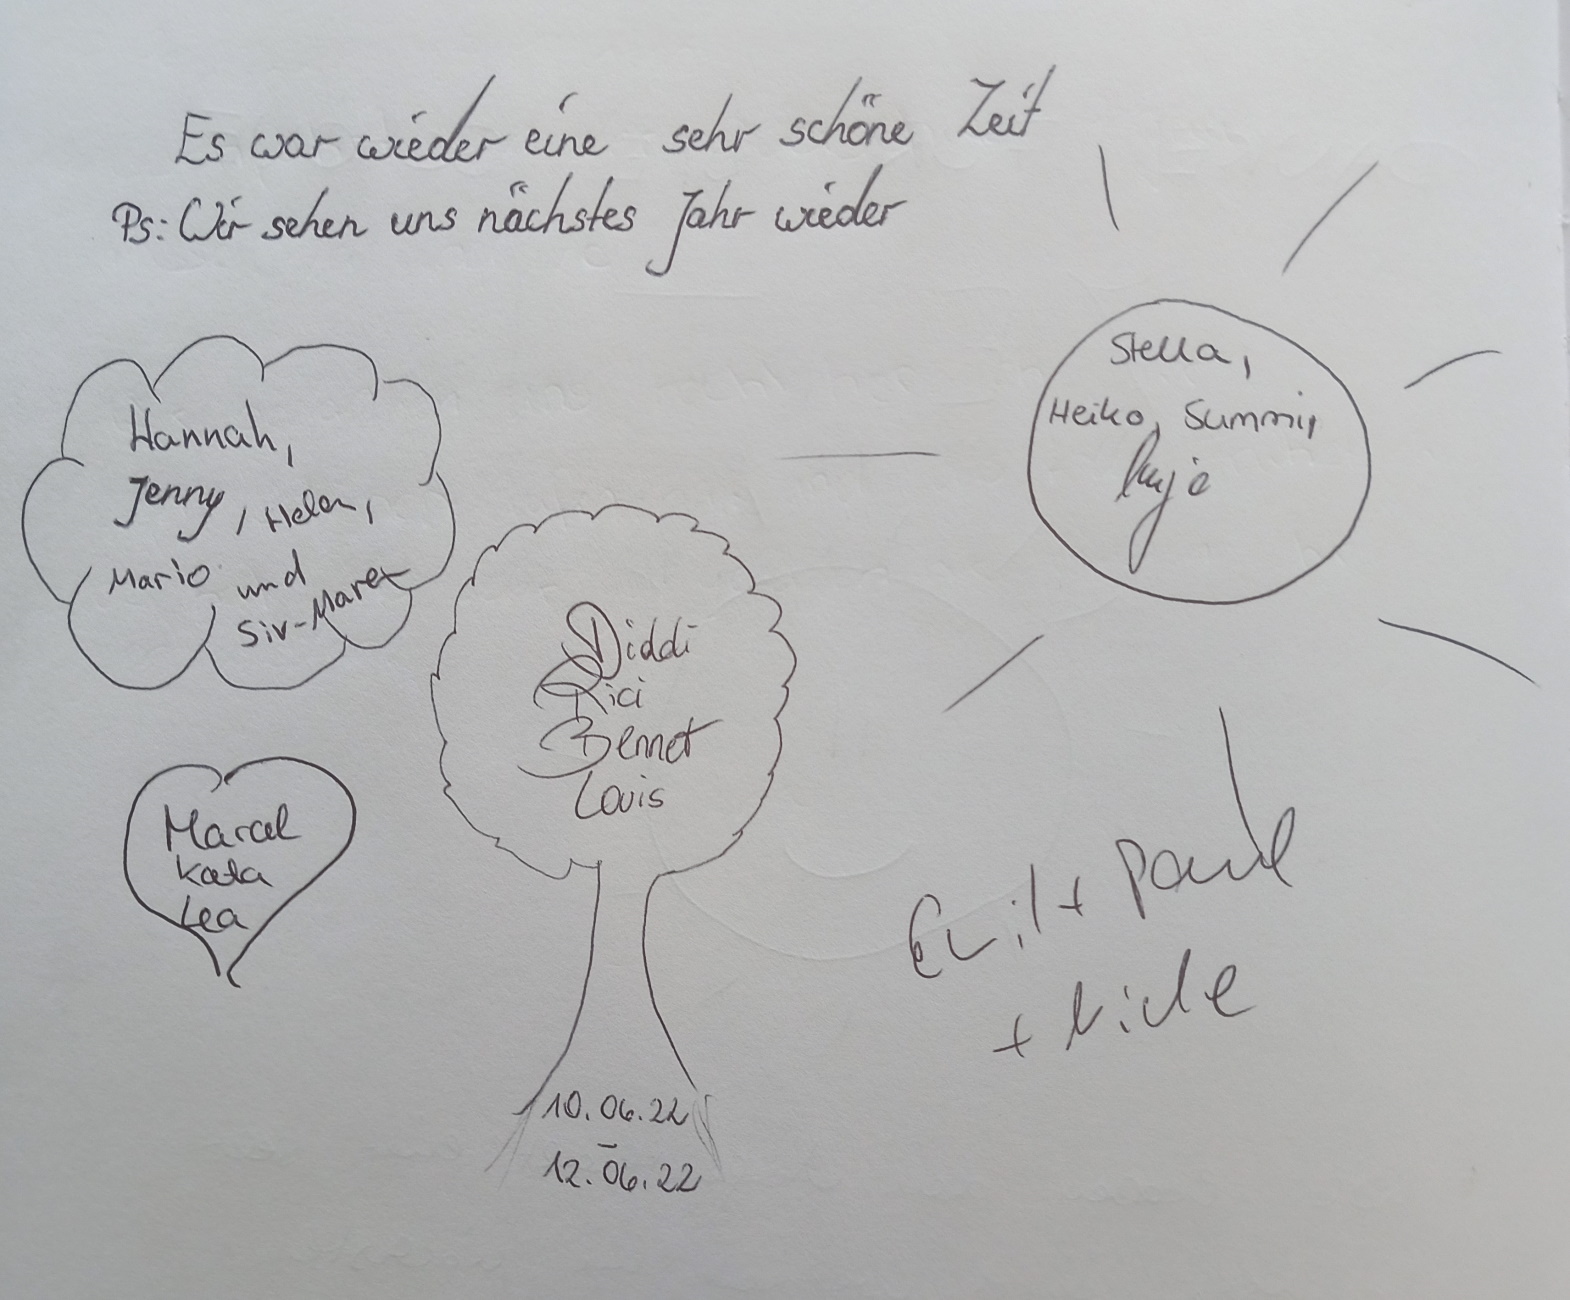 Es war wieder eine sehr schöne Zeit
Ps: Wir sehen uns nächstes Jahr wieder
Hannah,
Jenny, Helen,
Mario und
Siv-Maret
Stella,
Heiko, Summi,
Diddi
Rici
Bennet
Louis
Marcel
Kata
Lea
Emil + Paul
+
10.06.22
–
12.06.22